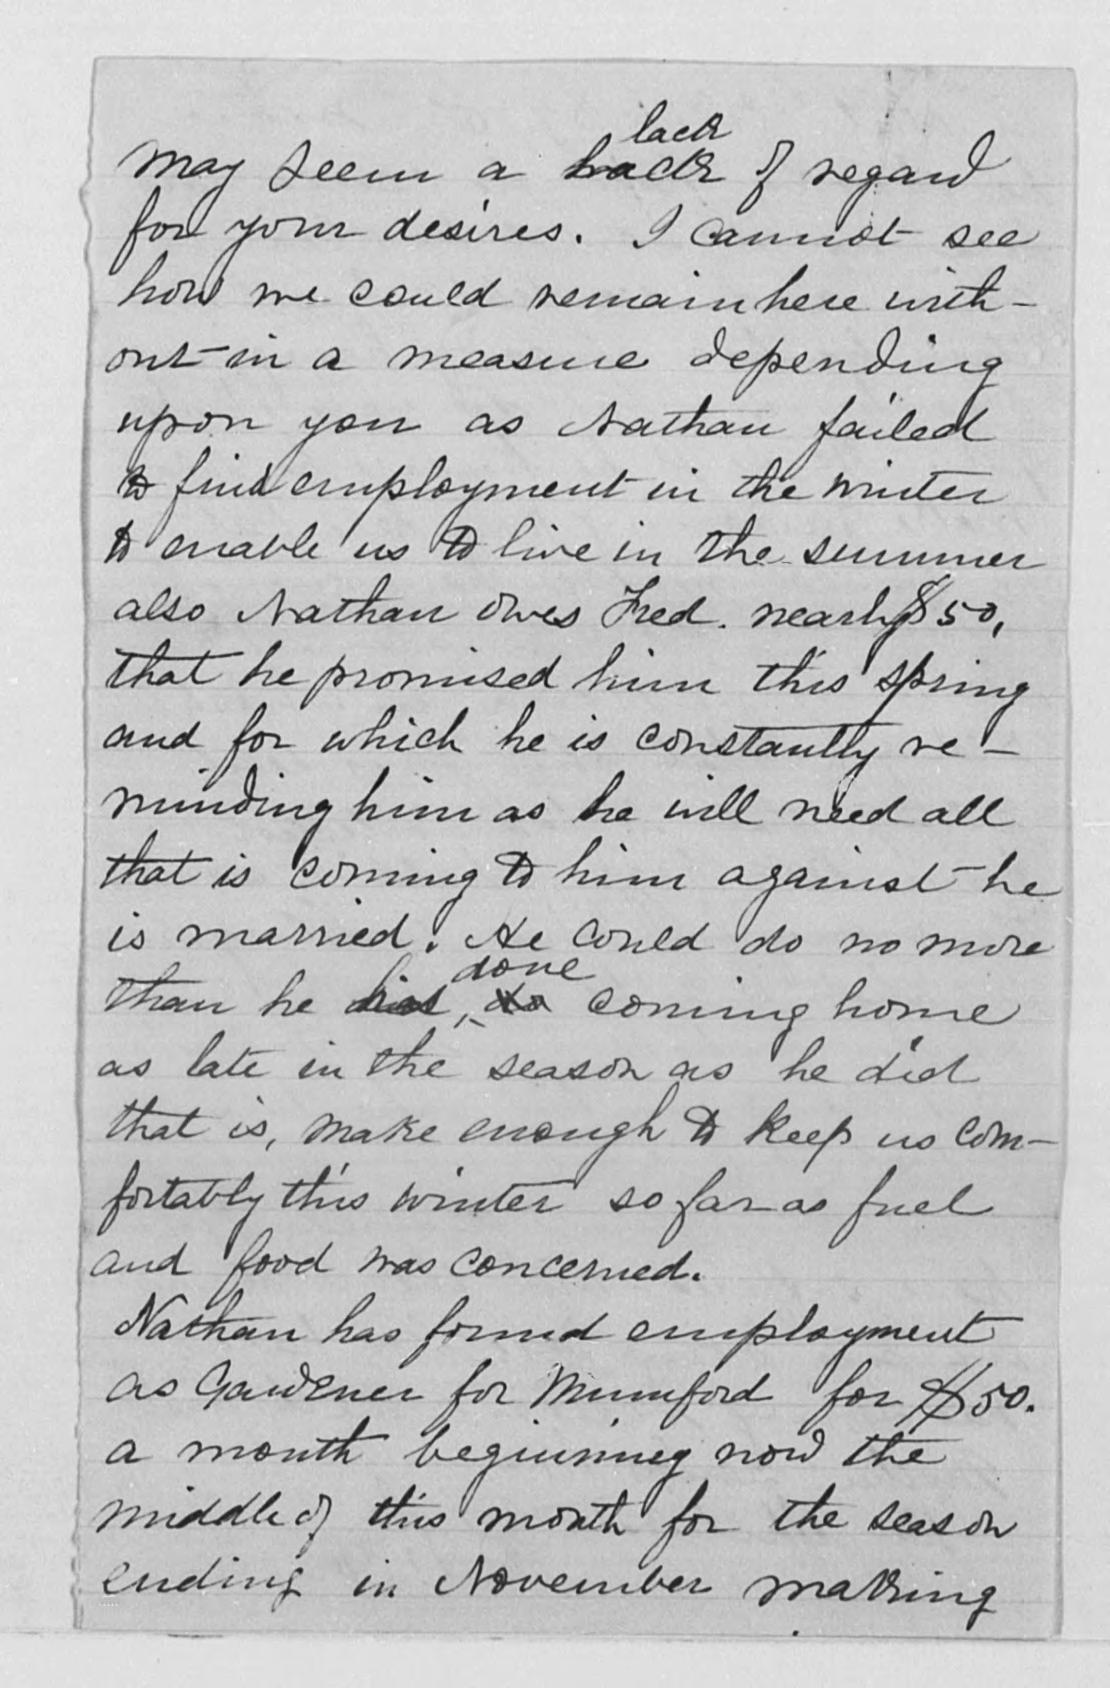 lack
may seem a hack of regard
for your desires. I cannot see
how we could remain here with-
out in a measure depending
upon you as Nathan failed
to find employment in the winter
to enable us to live in the summer
also Nathan owes Fred. nearly $50,
that he promised him this spring
and for which he is constantly re-
minding him as he will need all
that is coming to him against he
is married. He could do no more
done
than he has, do coming home
as late in the season as he did
that is, make enough to keep us com-
fortably this winter so far as fuel
and food was concerned.
Nathan has found employment
as Gardener for Mumford for $50.
a month beginning now the
middle of this month for the season
ending in November making